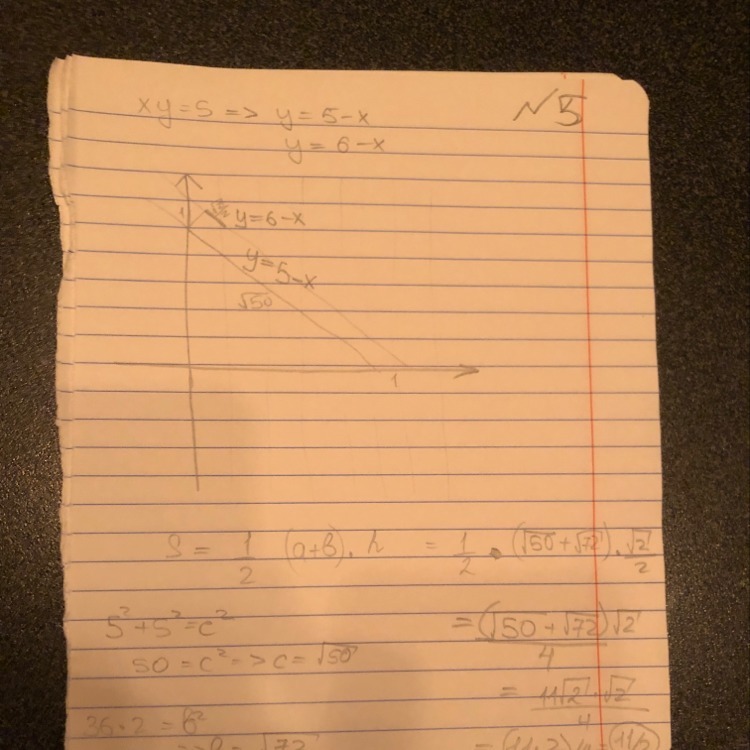 xy=5 => y = 5-x
№5
y = 6-x
1
y=6-x
y=5-x
√50
1
S = 1/2 (a+b). h = 1/2 • (√50+√72).√2/2
5²+5²=c²
= (√50+√72)√2/4
50 = c² => c = √50
= 11√2.√2/4
36.2 = b²